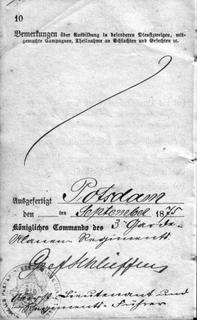 10
Bemerkungen über Ausbildung in besonderen Dienstzweigen, mit-
gemachte Campagnen, Theilnahme an Schlachten und Gefechten ꝛc.
Ausgefertigt Potsdam
den ten September 1875
Königliches Commando des 3. Garde-
Ulanen Regiments
Graf Schlieffen
Oberst-Lieutenant und
Regiments-Führer